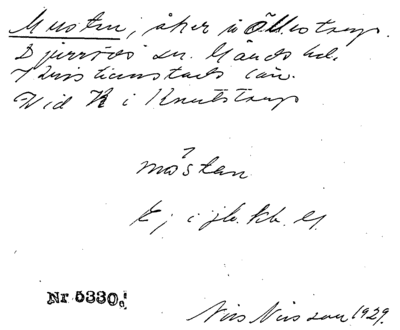 Musten, åker i Öllestorp.
Djurröds sn. Gärds hd.
Kristianstads län.
Vid K i Knutstorp
mɷ́stan
K j i jb. kb. Gk.
Nr 5330.
Nils Nilsson 1929.